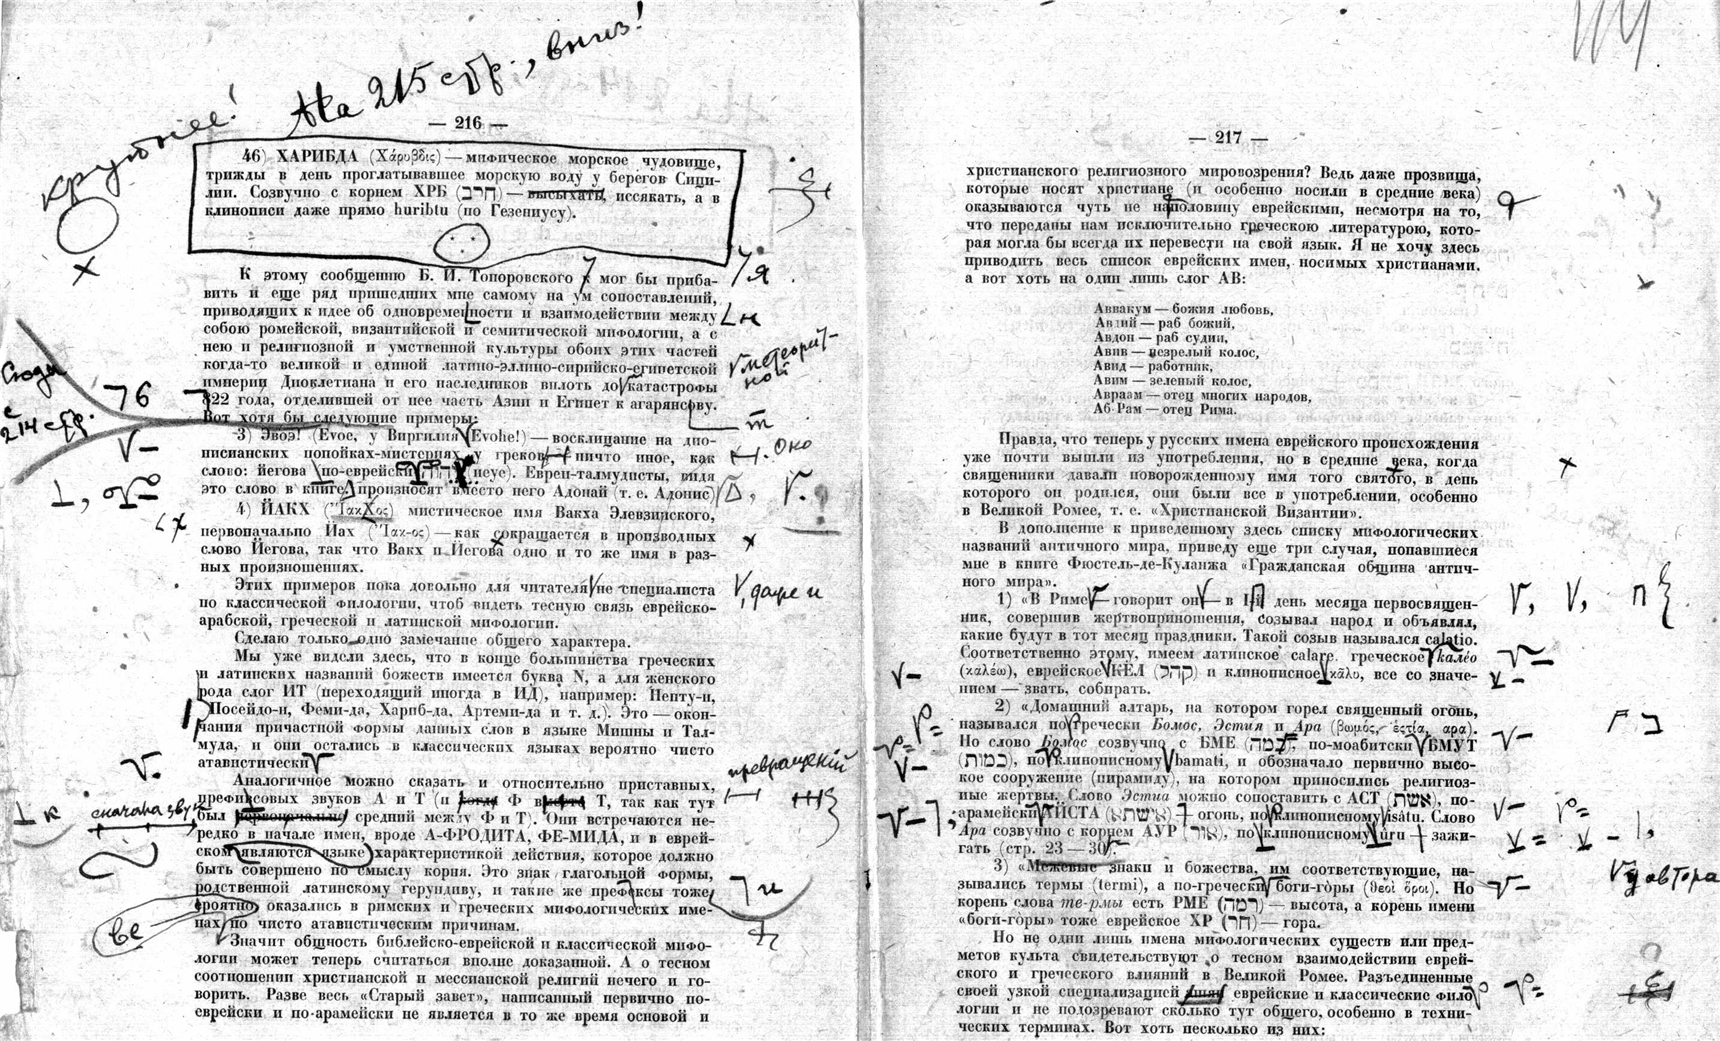 Крупнее!
На 215 стр., вниз!
— 216 —
46) ХАРИБДА (Χάρυβδις) — мифическое морское чудовище,
трижды в день проглатывавшее морскую воду у берегов Сици-
лии. Созвучно с корнем ХРБ (חרב) — высыхать, иссякать, а в
клинописи даже прямо huribtu (по Гезениусу).
К этому сообщению Б. И. Топоровского я мог бы приба-
вить и еще ряд пришедших мне самому на ум сопоставлений,
приводящих к идее об одновременности и взаимодействии между
собою ромейской, византийской и семитической мифологии, а с
нею и религиозной и умственной культуры обоих этих частей
когда-то великой и единой латино-эллино-сирийско-египетской
империи Диоклетиана и его наследников вплоть до катастрофы
822 года, отделившей от нее часть Азии и Египет к агарянсву.
Вот хотя бы следующие примеры:
3) Эвоэ! (Evoe, у Виргилия Evohe!) — восклицание на дио-
нисианских попойках-мистериях у греков ничто иное, как
слово: йегова по-еврейски (ieye). Евреи-талмудисты, видя
это слово в книге, произносят вместо него Адонай (т. е. Адонис)
4) ЙАКХ (Ἴακχος) мистическое имя Вакха Элевзинского,
первоначально Йах (Ἴακ-ος) — как сокращается в производных
слово Йегова, так что Вакх и Йегова одно и то же имя в раз-
ных произношениях.
Этих примеров пока довольно для читателя не специалиста
по классической филологии, чтоб видеть тесную связь еврейско-
арабской, греческой и латинской мифологии.
Сделаю только одно замечание общего характера.
Мы уже видели здесь, что в конце большинства греческих
и латинских названий божеств имеется буква N, а для женского
рода слог ИТ (переходящий иногда в ИД), например: Непту-н,
Посейдо-н, Феми-да, Харпб-да, Артеми-да и т. д.). Это — окон-
чания причастной формы данных слов в языке Мишны и Тал-
муда, и они остались в классических языках вероятно чисто
атавистически
Аналогичное можно сказать и относительно приставных,
префиксовых звуков А и Т (и когда Ф вместо Т, так как тут
был первоначально средний между Ф и Т). Они встречаются не-
редко в начале имен, вроде А-ФРОДИТА, ФЕ-МИДА, и в еврей-
ском являются языке характеристикой действия, которое должно
быть совершено по смыслу корня. Это знак глагольной формы,
родственной латинскому герундиву, и такие же префексы тоже
ероятно оказались в римских и греческих мифологических име-
нах по чисто атавистическим причинам.
Значит общность библейско-еврейской и классической мифо-
логии может теперь считаться вполне доказанной. А о тесном
соотношении христианской и мессианской религий нечего и го-
ворить. Разве весь «Старый завет», написанный первично по-
еврейски и по-арамейски не является в то же время основой и
Сюда
с
214 стр.
76
сначала звук
ве
7я
н
метеорит-
ной
т
Око
даже и
превращений
7и
— 217 —
христианского религиозного мировозрения? Ведь даже прозвища,
которые носят христиане (и особенно носили в средние века)
оказываются чуть не наполовину еврейскими, несмотря на то,
что переданы нам исключительно греческою литературою, кото-
рая могла бы всегда их перевести на свой язык. Я не хочу здесь
приводить весь список еврейских имен, носимых христианами,
а вот хоть на один лишь слог АВ:
Аввакум — божия любовь,
Авдий — раб божий,
Авдон — раб судии,
Авив — незрелый колос,
Авид — работник,
Авим — зеленый колос,
Авраам — отец многих народов,
Аб-Рам — отец Рима.
Правда, что теперь у русских имена еврейского происхождения
уже почти вышли из употребления, но в средние века, когда
священники давали новорожденному имя того святого, в день
которого он родился, они были все в употреблении, особенно
в Великой Ромее, т. е. «Христианской Византии».
В дополнение к приведенному здесь списку мифологических
названий античного мира, приведу еще три случая, попавшиеся
мне в книге Фюстель-де-Куланжа «Гражданская община антич-
ного мира».
1) «В Риме — говорит он — в 1-й день месяца первосвящен-
ник, совершив жертвоприношения, созывал народ и объявлял,
какие будут в тот месяц праздники. Такой созыв назывался calatio.
Соответственно этому, имеем латинское calare, греческое kaléo
(καλέω), еврейское КЕЛ (קהל) и клинописное kālu, все со значе-
нием — звать, собирать.
2) «Домашний алтарь, на котором горел священный огонь,
назывался по гречески Бомос, Эстия и Ара (βωμός, ἑστία, αρα).
Но слово Бомос созвучно с БМЕ (במה), по-моабитски БМУТ
(במות), по клинописному bamati, и обозначало первично высо-
кое сооружение (пирамиду), на котором приносились религиоз-
ные жертвы. Слово Эстиа можно сопоставить с АСТ (אשת), по-
арамейски АЙСТА (אשתא) — огонь, по клинописному isátu. Слово
Ара созвучно с корнем АУР (אור), по клинописному úru — зажи-
гать (стр. 23 — 30).
3) «Межевые знаки и божества, им соответствующие, на-
зывались термы (termi), а по-гречески боги-го̀ры (θεοὶ ὅροι). Но
корень слова те-рмы есть РМЕ (רמה) — высота, а корень имени
«боги-го̀ры» тоже еврейское ХР (חר) — гора.
Но не одни лишь имена мифологических существ или пред-
метов культа свидетельствуют о тесном взаимодействии еврей-
ского и греческого влияний в Великой Ромее. Разъединенные
своей узкой специализацией еврейские и классические фило-
логии и не подозревают сколько тут общего, особенно в техни-
ческих терминах. Вот хоть несколько из них:
у автора